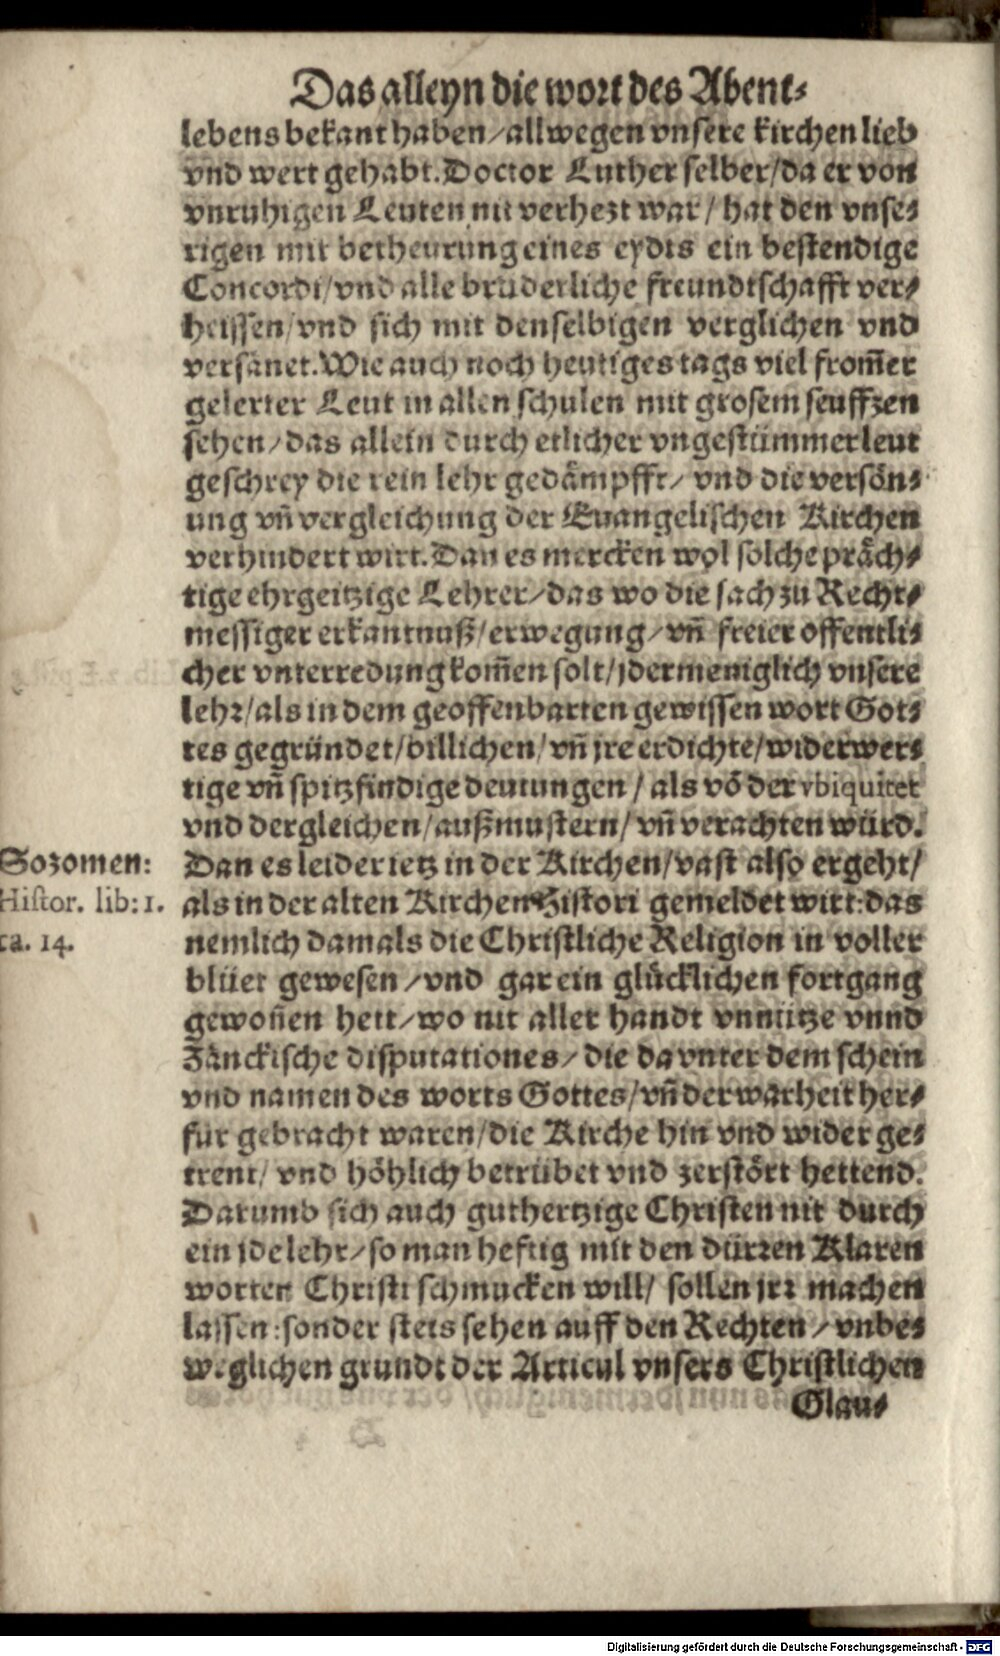 Das alleyn die wort des Abent-
lebens bekant haben/allwegen vnsere kirchen lieb
vnd wert gehabt. Doctor Luther selber/da er von
vnruhigen Leuten nit verhezt war/hat den vnse-
rigen mit betheurung eines eydts ein bestendige
Concordi/vnd alle bruderliche freundtschafft ver-
heissen/vnd sich mit denselbigen verglichen vnd
versånet. Wie auch noch heutiges tags viel from̄er
gelerter Leut in allen schulen mit grosem seuffzen
sehen/das allein durch etlicher vngestümmer leut
geschrey die rein lehr gedåmpfft/vnd die versön-
ung vñ vergleichung der Euangelischen Kirchen
verhindert wirt. Dan es mercken wol solche pråch-
tige ehrgeitzige Lehrer/das wo die sach zu Recht-
messiger erkantnuß/erwegung/vñ freier offentli-
cher vnterredung kom̄en solt/jdermeniglich vnsere
lehr/als in dem geoffenbarten gewissen wort Got-
tes gegründet/billichen/vñ jre erdichte/widerwer-
tige vñ spitzfindige deutungen/als võ der vbiquitet
vnd dergleichen/außmustern/vñ verachten würd.
Sozomen:
Histor. lib: 1.
ca. 14.
Dan es leider ietz in der Kirchen/vast also ergeht/
als in der alten Kirchen Histori gemeldet wirt: das
nemlich damals die Christliche Religion in voller
blüet gewesen/vnd gar ein glücklichen fortgang
gewoñen hett/wo nit aller handt vnnütze vnnd
Zånckische disputationes/die da vnter dem schein
vnd namen des worts Gottes/vñ der warheit her-
fur gebracht waren/die Kirche hin vnd wider ge-
trent/vnd höhlich betrübet vnd zerstört hettend.
Darumb sich auch guthertzige Christen nit durch
ein jde lehr/so man heftig mit den dürren Klaren
worten Christi schmucken will/sollen jrr machen
lassen: sonder stets sehen auff den Rechten/vnbe-
weglichen grundt der Articul vnsers Christlichen
Glau-
Digitalisierung gefördert durch die Deutsche Forschungsgemeinschaft - DFG